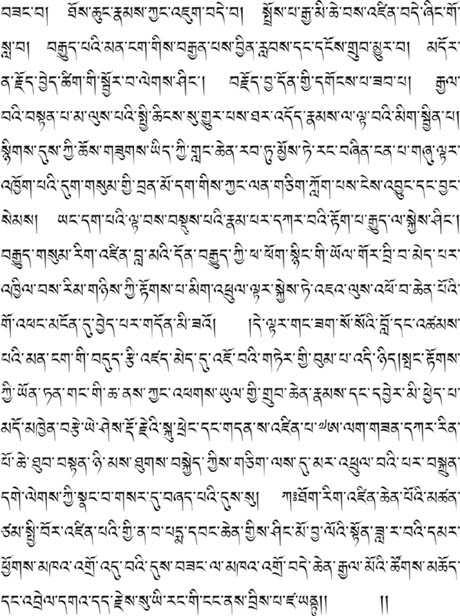 བཟང་བ། ཐོས་ཆུང་རྣམས་ཀྱང་འཇུག་བདེ་བ། སྤྲོས་པ་རྒྱ་མི་ཆེ་བས་འཛིན་བདེ་ཞིང་གོ་
སླ་བ། བརྒྱུད་པའི་མན་ངག་གིས་བརྒྱན་པས་བྱིན་རླབས་དང་དངོས་གྲུབ་མྱུར་བ། མདོར་
ན་རྗོད་བྱེད་ཚིག་གི་སྦྱོར་བ་ལེགས་ཤིང་། བརྗོད་བྱ་དོན་གྱི་དགོངས་པ་ཟབ་པ། རྒྱལ་
བའི་བསྟན་པ་མ་ལུས་པའི་སྤྱི་ཆིངས་སུ་གྱུར་པས་ཐར་འདོད་རྣམས་ལ་ལྟ་བའི་མིག་སྦྱིན་པ།
སྙིགས་དུས་ཀྱི་ཆོས་གཟུགས་ཡིད་ཀྱི་གླང་ཆེན་རབ་ཏུ་མྱོས་ཏེ་རང་བཞིན་ངན་པ་གཞུ་ལྟར་
འཁྱོག་པའི་དུག་གསུམ་གྱི་བྲན་མོ་དག་གིས་ཀྱང་ལན་གཅིག་ཀློག་པས་ངེས་འབྱུང་དང་བྱང་
སེམས། ཡང་དག་པའི་ལྟ་བས་བསྡུས་པའི་རྣམ་པར་དཀར་བའི་རྟོག་པ་རྒྱུད་ལ་སྐྱེས་ཤིང་།
བརྒྱུད་གསུམ་རིག་འཛིན་བླ་མའི་དོན་བརྒྱུད་ཀྱི་ཕ་ཕོག་སྙིང་གི་ཡོལ་གོར་དྲི་བ་མེད་པར་
འཁྱིལ་བས་རིམ་གཉིས་ཀྱི་རྟོགས་པ་མིག་འཕྲུལ་ལྟར་སྐྱེས་ཏེ་འཇའ་ལུས་འཕོ་བ་ཆེན་པོའི་
གོ་འཕང་མངོན་དུ་བྱེད་པར་གདོན་མི་ཟའོ། །དེ་ལྟར་གང་ཟག་སོ་སོའི་བློ་དང་འཚམས་
པའི་མན་ངག་གི་བདུད་རྩི་འཛད་མེད་དུ་འཇོ་བའི་གཏེར་གྱི་བུམ་པ་འདི་ཉིད།སྤང་རྟོགས་
ཀྱི་ཡོན་ཏན་གང་གི་ཆ་ནས་ཀྱང་འཕགས་ཡུལ་གྱི་གྲུབ་ཆེན་རྣམས་དང་དབྱེར་མི་ཕྱེད་པ་
མདོ་མཁྱེན་བརྩེ་ཡེ་ཤེས་རྡོ་རྗེའི་སྐུ་ཕྲེང་དང་གདན་ས་འཛིན་པ་༧ཨ་ལག་གཟན་དཀར་རིན་
པོ་ཆེ་ཐུབ་བསྟན་ཉི་མས་ཐུགས་བསྐྱེད་ཀྱིས་གཅིག་ལས་དུ་མར་འཕྲུལ་བའི་པར་བསྐྲུན་
དགེ་ལེགས་ཀྱི་སྣང་བ་གསར་དུ་བཞད་པའི་དུས་སུ། ཀཿཐོག་རིག་འཛིན་ཆེན་པོའི་མཚན་
ཙམ་སྤྱི་བོར་འཛིན་པའི་གྱི་ན་བ་པདྨ་དབང་ཆེན་གྱིས་ཤིང་མོ་བྱ་ལོའི་སྟོན་ཟླ་ར་བའི་དམར་
ཕྱོགས་མཁའ་འགྲོ་འདུ་བའི་དུས་བཟང་ལ་མཁའ་འགྲོ་བདེ་ཆེན་རྒྱལ་མོའི་ཚོགས་མཆོད་
དང་འབྲེལ་དགའ་དད་རྗེས་སུ་ཡི་རང་གི་ངང་ནས་བྲིས་པ་ཛ་ཡནྟུ།། །།